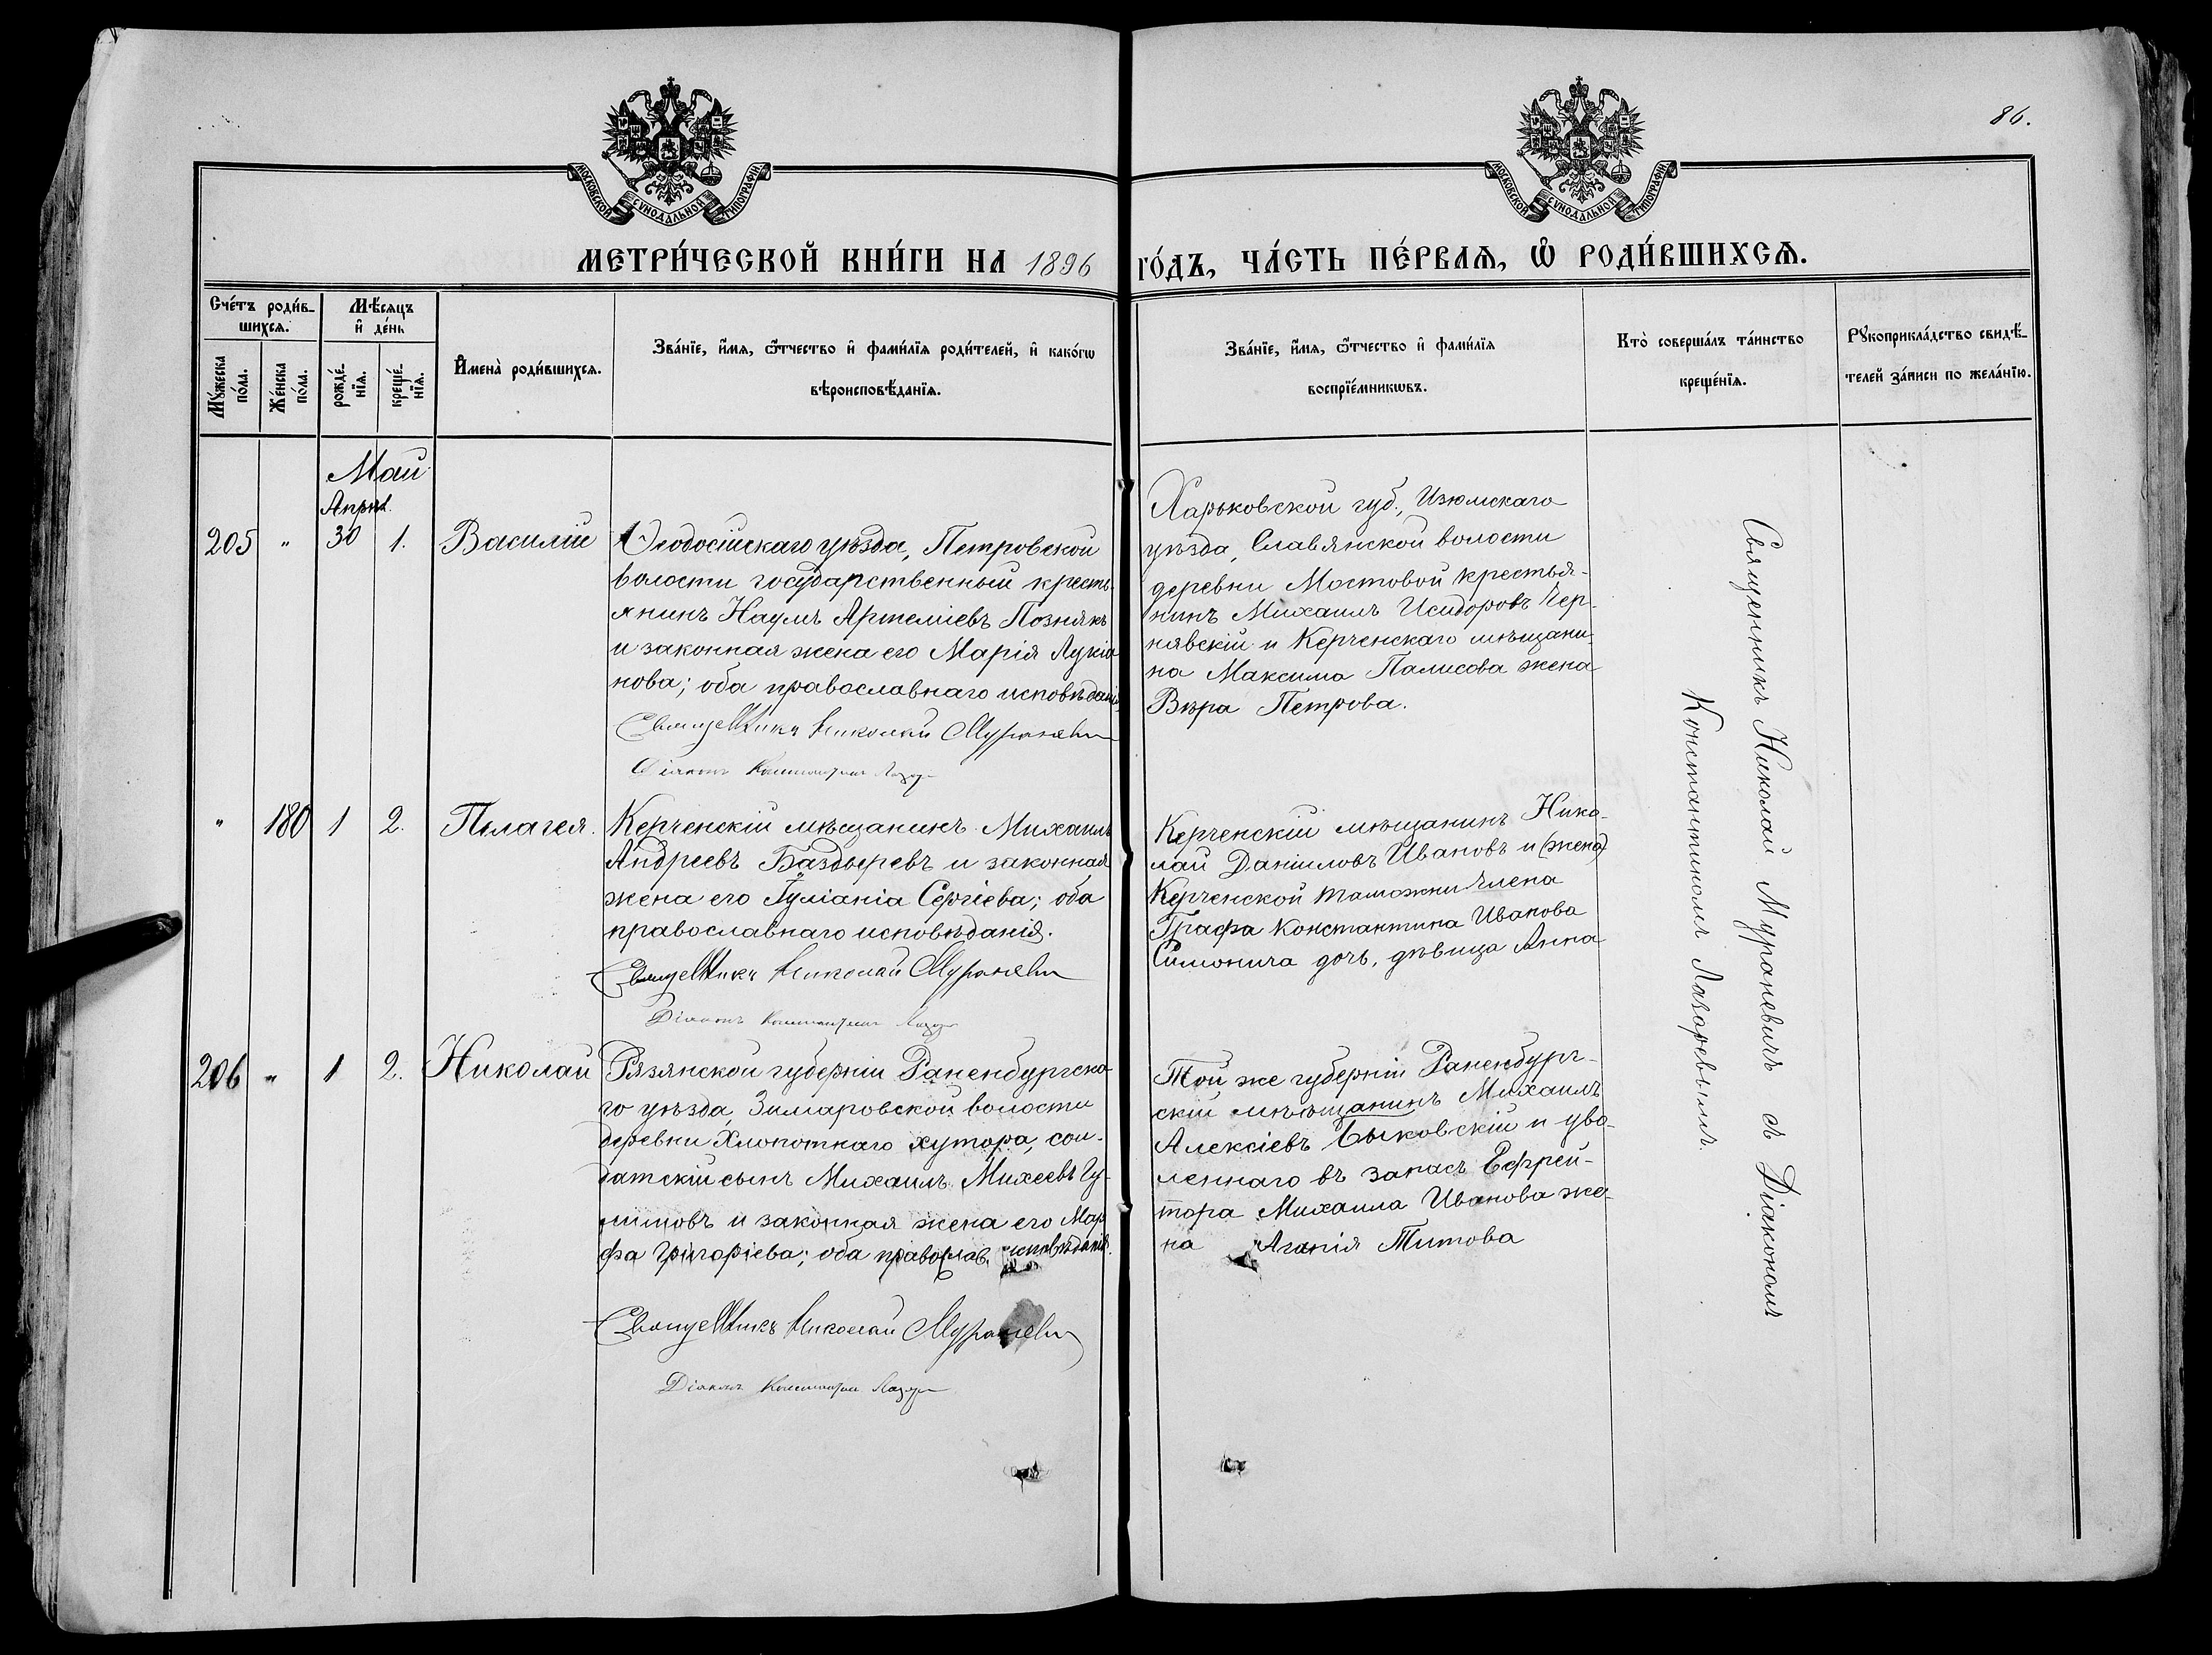 86.
МОСКОВСКОЙ СѴНОДАЛЬНОЙ ТИПОГРАФІИ.
МОСКОВСКОЙ СѴНОДАЛЬНОЙ ТИПОГРАФІИ.
МЕТРИ́ЧЕСКОЙ КНИ́ГИ НА 1896 ГО́ДЪ, ЧА́СТЬ ПЕ́РВАѦ, Ѡ РОДИ́ВШИХСѦ.
Сче́тъ роди́в-
шихсѧ.
Мꙋ́жеска
по́ла.
Же́нска
по́ла.
Мѣ́сѧцъ
и҆ де́нь
рожде́-
нїѧ.
креще́-
нїѧ.
И҆мена̀ роди́вшихсѧ.
Зва́нїе, и҆́мѧ, ѻ҆́тчество и҆ фами́лїѧ роди́телей, и҆ како́гѡ
вѣроисповѣ́данїѧ.
Зва́нїе, и҆́мѧ, ѻ҆́тчество и҆ фами́лїѧ
воспрїе́мникѡвъ.
Кто̀ соверша́лъ та́инство
креще́нїѧ.
Рꙋкоприкла́дство свидѣ́-
телей за́писи по жела́нїю.
Май
Април.
205 " 30 1. Василій
Ѳеодосійскаго уѣзда, Петровской
волости государственный кресть-
янинъ Наумъ Артеміевъ Познякъ
и законная жена его Марія Лукіа
нова; оба православнаго исповѣданія
Священникъ Николай Мураневич
Діаконъ Константин Лазар
Харьковской губ., Изюмскаго
уѣзда, Славянской волости
деревни Мостовой крестья-
нинъ Михаилъ Исидоровъ Чер-
нявскій и Керченскаго мѣщани-
на Максима Палисова жена
Вѣра Петрова.
" 180 1 2. Пелагея.
Керченскій мѣщанинъ Михаилъ
Андреевъ Баздыревъ и законная
жена его Іуліанія Сергіева; оба
православнаго исповѣданія.
Священникъ Николай Мураневич
Діаконъ Константин Лазар
Керченскій мѣщанинъ Нико-
лай Даніиловъ Ивановъ и (жена)
Керченской таможни члена
Графа Константина Иванова
Симонича дочь, дѣвица Анна
206 " 1 2. Николай
Рязянской губерніи Раненбургска-
го уѣзда, Зимаровской волости
деревни Хлопотнаго хутора, сол-
датскій сынъ Михаилъ Михеевъ Гу-
лимовъ и законная жена его Мар
фа Григоріева; оба православ. исповѣданія.
Священникъ Николай Мураневич
Діаконъ Константин Лазар
Той же губерніи Раненбург-
скій мѣщанинъ Михаилъ
Алексіевъ Быковскій и уво-
леннаго въ запасъ Ефрей-
тора Михаила Иванова же-
на Агапія Титова
Священникъ Николай Мураневичъ съ Діакономъ
Константиномъ Лазаревымъ.